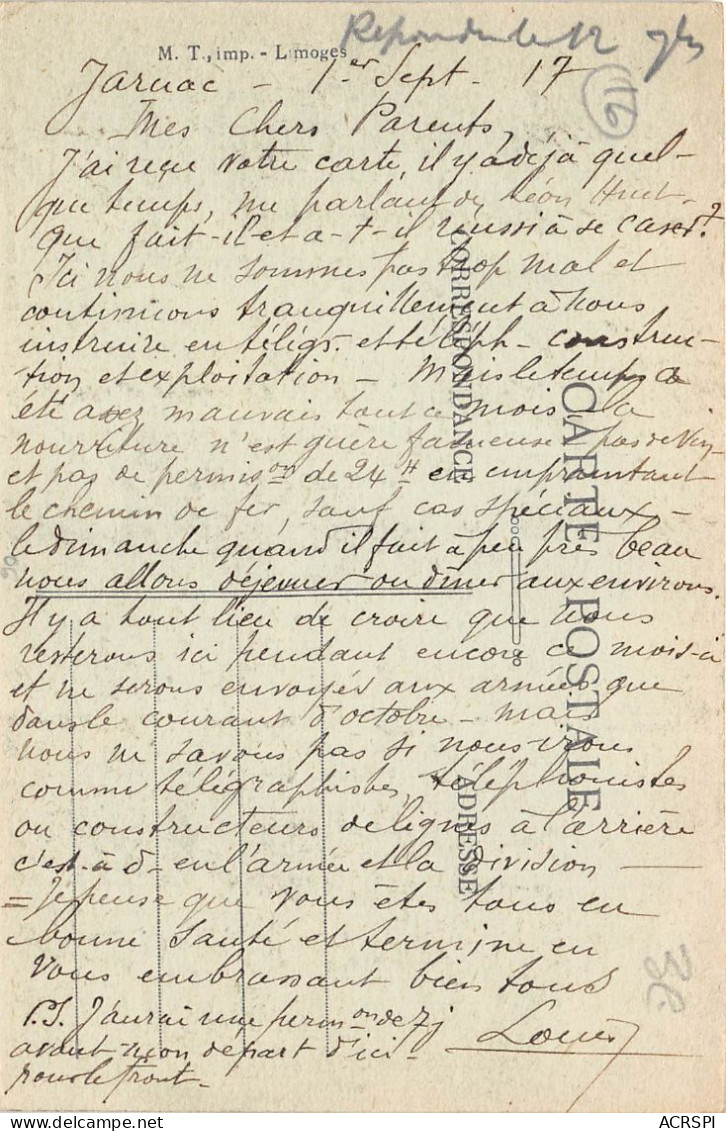 M. T., imp. - Limoges
Répondu le 12
16
Jarnac - 1er Sept - 17
Mes Chers Parents,
J'ai reçue votre carte, il y a déjà quel-
que temps, me parlant de Léon Huet-
que fait-il-et a-t-il réussi à se caser?
Ici nous ne sommes pas trop mal et
continuons tranquillement à nous
instruire en télégr. et téléph - construc-
tion et exploitation - Mais le temps a
été assez mauvais tout ce mois - la
nourriture n'est guère fameuse - pas de vin -
et pas de permison de 24 H en empruntant
le chemin de fer, sauf cas spéciaux -
le dimanche quand il fait à peu près beau
nous allons déjeuner ou dîner aux environs.
Il y a tout lieu de croire que nous
resterons ici pendant encore ce mois-ci
et ne serons envoyés aux armées que
dans le courant d'octobre - mais
nous ne savons pas si nous irons
comme télégraphistes, téléphonistes
ou constructeurs de lignes à l'arrière
c'est-à-d- en l'armée et la division -
= Je pense que vous êtes tous en
bonne santé et termine en
vous embrassant bien tous
P.S. J'aurai une permon de 7j
avant mon départ d'ici
pour le front -
Louis
CORRESPONDANCE
CARTE POSTALE
ADRESSE
ACRSPI